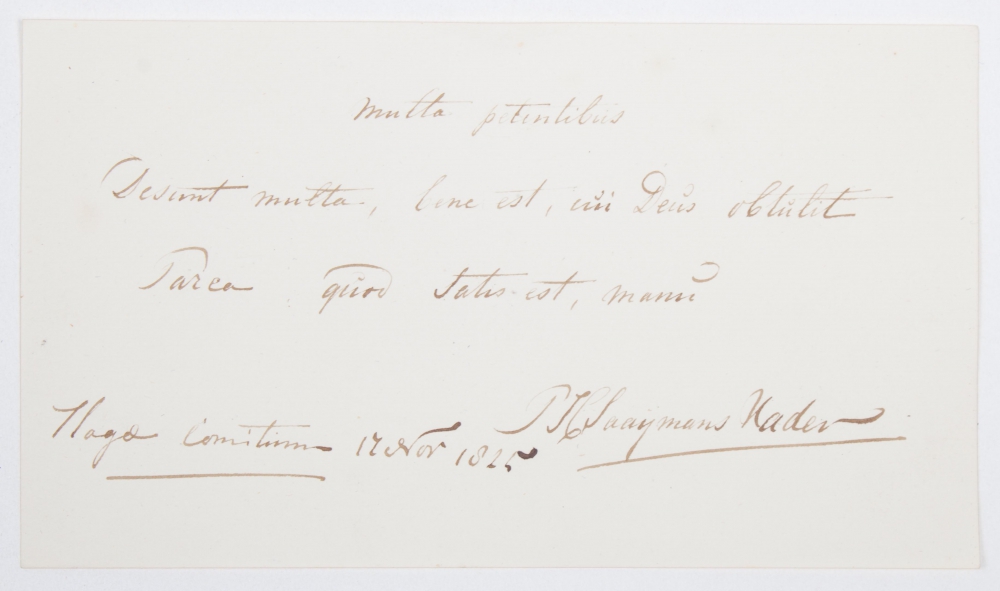 Multa petentibus
Desunt multa, bene est, cui Deus obtulit
Parca quod satis est, manu
Hagæ Comitum 17 Nov 1825 Saaymans Vader